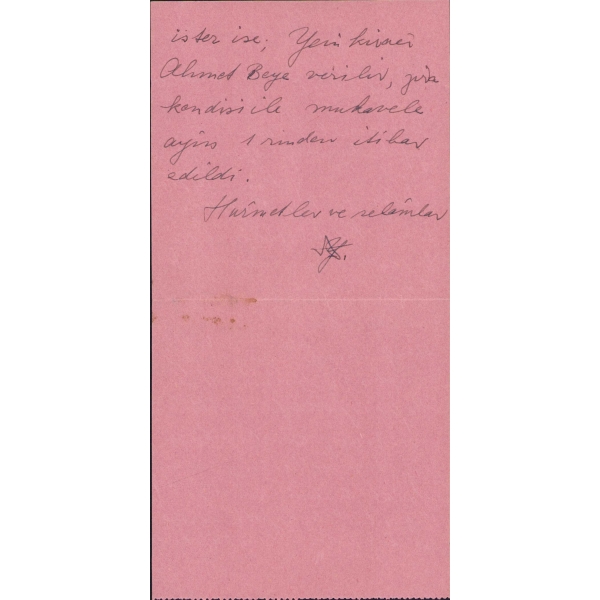 ister ise; Yeni kiracı
Ahmet Beye verilir, zira
kendisi ile mukavele
ayın 1 rinden itibar
edildi.
Hürmetler ve selâmlar